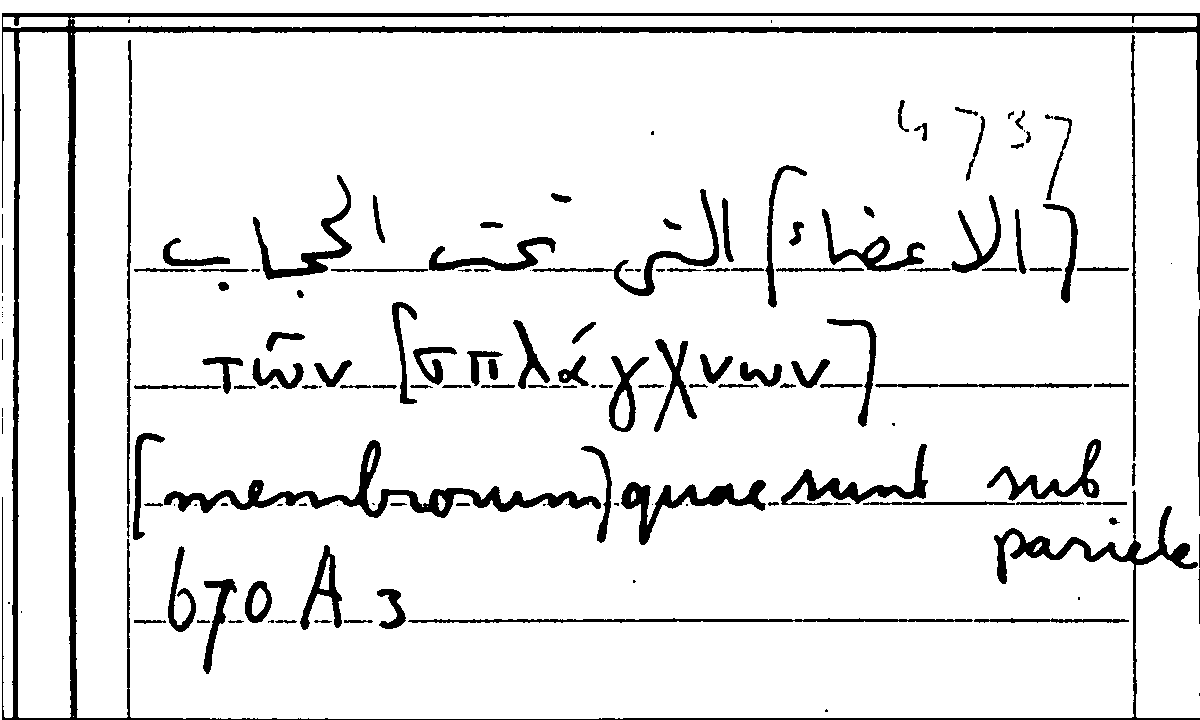 4737
[الاعضاء] التى تحت الحجاب
τῶν [σπλάγχνων]
[membrorum] quae sunt sub
pariete
670 A 3